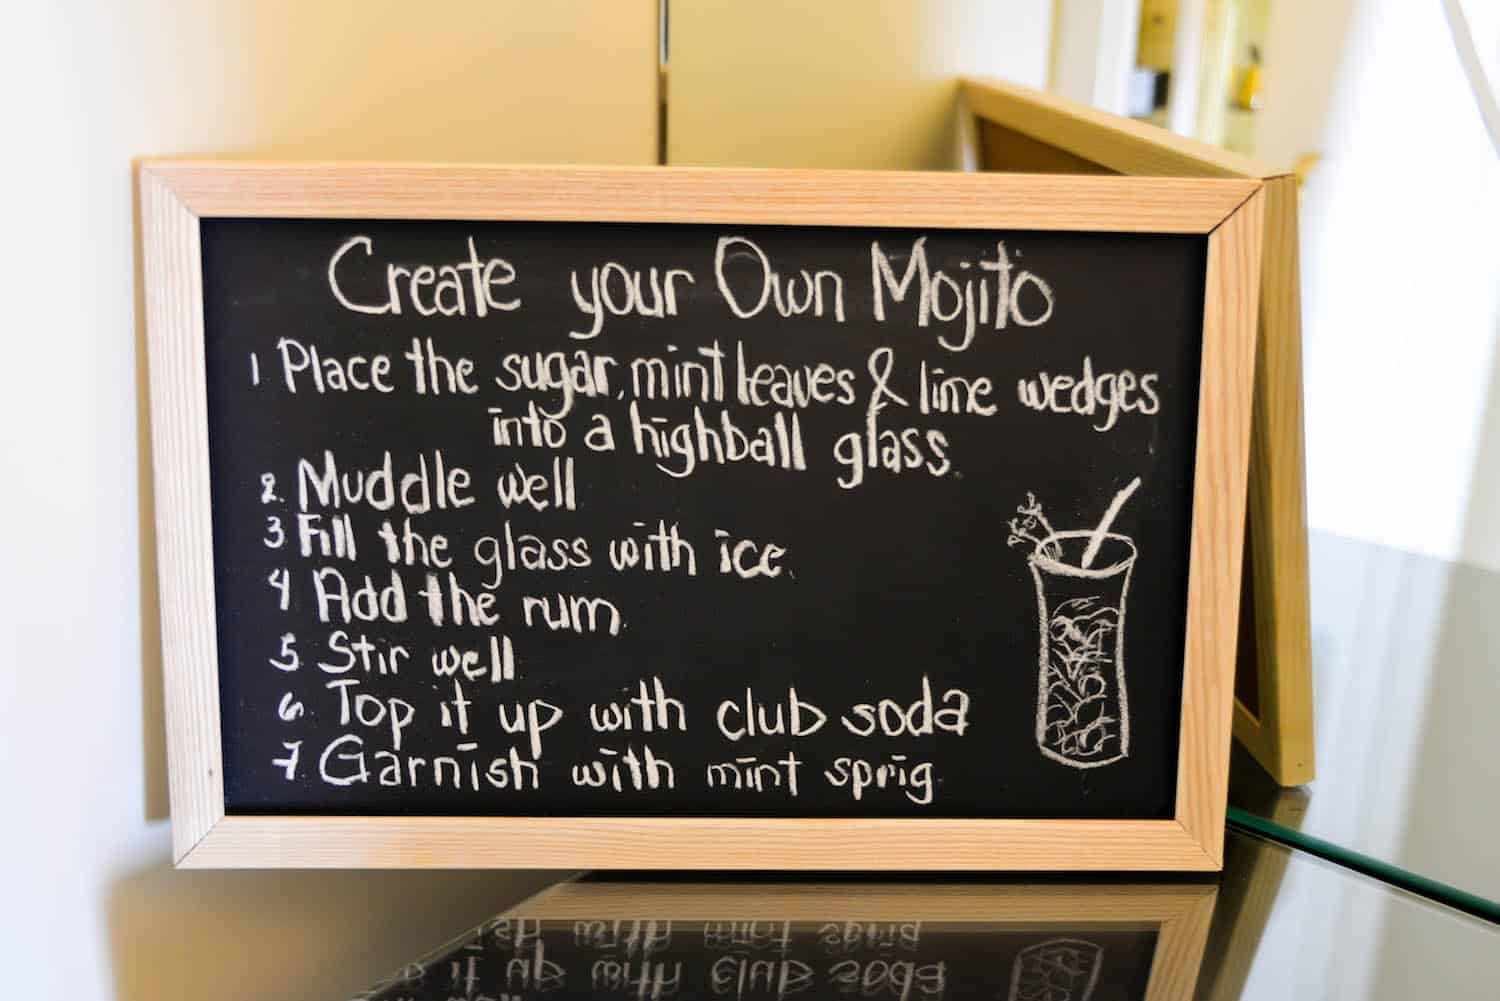 Create your Own Mojito
1. Place the sugar, mint leaves & lime wedges
into a highball glass.
2. Muddle well
3 Fill the glass with ice.
4 Add the rum.
5 Stir well
6. Top it up with club soda
7. Garnish with mint sprig.